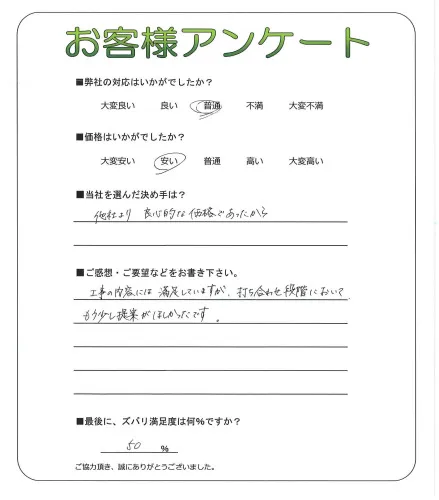 お客様アンケート
■弊社の対応はいかがでしたか?
大変良い 良い 普通 不満 大変不満
■価格はいかがでしたか?
大変安い 安い 普通 高い 大変高い
■当社を選んだ決め手は?
他社より 良心的な価格であったから
■ご感想・ご要望などをお書き下さい。
工事の内容には満足していますが、打ち合わせ段階において
もう少し提案がほしかったです。
■最後に、ズバリ満足度は何%ですか?
50 %
ご協力頂き、誠にありがとうございました。